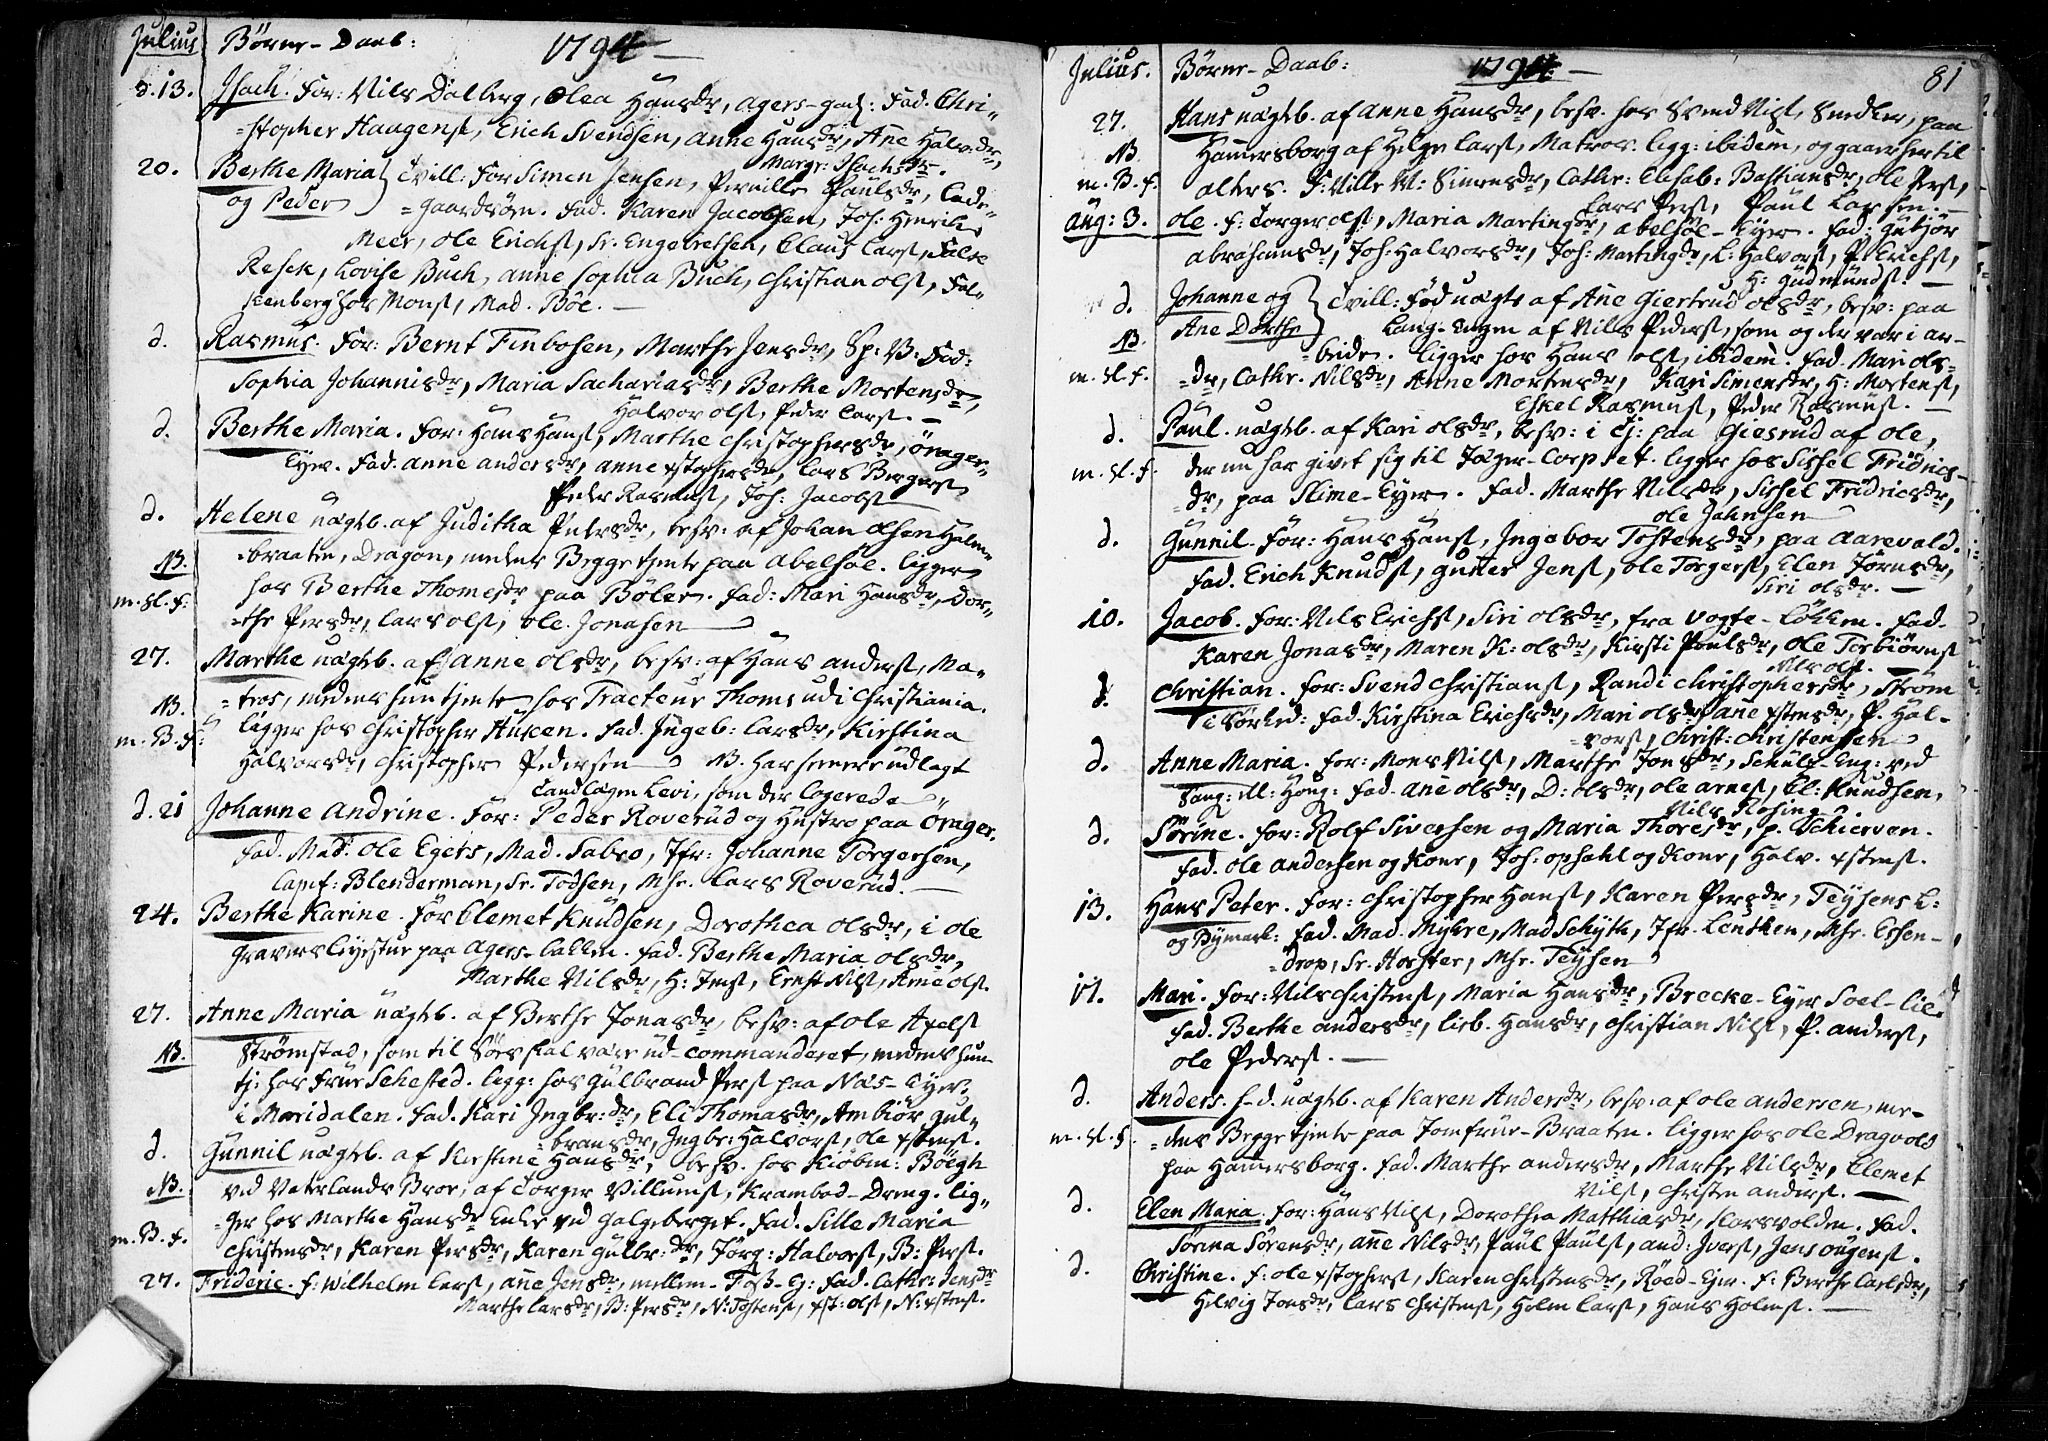 Julius Börne-Daab: 1794
d. 13. Isach. For: Nils Dalberg, Olea Hansdr, Agers-gad: Fad. Chri-
stopher Haagens, Erich Svendsen, Anne Hansdr, Ane Halv.dr,
Margr: Isachsdr.
20. Berthe Maria og Peder Tvill: For Simen Jensen, Pernille Paulsdr, Lade-
gaardsöen. Fad. Karen Jacobsen, Joh: Henrik
Meer, Ole Erichs, Sr. Engebretsen, Claus Lars, Falk
Resek, Lovise Buch, Anne Sophia Buch, Christian Ols, Fal-
kenberg hos Mons, Mad. Böe.
d. Rasmus. For: Bernt Finbosen, Marthe Jensdr, Sp: V: Fad:
Sophia Johannisdr, Maria Sachariasdr, Berthe Mortensdr,
Halvor Ols, Peder Lars.
d. Berthe Maria. For: Hans Hans, Marthe Christophersdr, Örager-
Eyer. Fad. Anne Andersdr, Anne Xstophersdr, Lars Bergers,
Peder Rasmus, Joh: Jacobs
d. Helene uægtb. af Juditha Pedersdr, besv: af Johan Olsen Halm-
NB. braaten, Dragon, medens Begge tjente paa Abelsöe. ligger
m. Sl. f: hos Berthe Thomesdr paa Böler. Fad: Mari Hansdr, Dor-
the Persdr, Lars Ols, Ole Jonasen
27. Marthe uægtb. af Anne Olsdr, besv: af Hans Anders, Ma-
NB. tros, medens hun tjente hos Tracteur Thoms ud i Christiania.
m. B. f: ligger hos Christopher Husen. Fad. Ingeb: Larsdr, Kirstina
Halvorsdr, Christopher Pedersen NB. Har senere udlagt
Tandlægen Levi, som der logerede
d. 21 Johanne Andrine. For: Peder Roverud og Hustro paa Örager.
Fad. Mad. Ole Egers, Mad. Sabro, Jfr: Johanne Torgersen,
Capt: Blenderman, Sr. Todsen, Mhr. Lars Roverud.
24. Berthe Karine. For Clemet Knudsen, Dorothea Olsdr, i Ole
Gravers Liyestue paa Agers-Lökken. Fad. Berthe Maria Olsdr,
Marthe Nilsdr, H: Jens, Ernst Nils, Arne Ols.
27. Anne Maria uægtb. af Berthe Jonasdr, besv: af Ole Axels
NB. Strömstad, som til Söes skal være ud-commanderet, medens hun
tj: hos Frue Sehested. ligg: hos Gulbrand Pers paa Næs-Eyer
i Maridalen. Fad. Kari Ingbr:dr, Eli Thomasdr, Ambiör Gul-
bransdr, Ingbr: Halvors, Ole Xstens.
d. Gunnil uægtb. af Kirstine Hansdr, besv. hos Kiöbm: Böegh
NB. ved Vaterlands Broe, af Torger Villums, Krambod-Dreng. lig-
m. B. f. ger hos Marthe Hansdr Enke ved Galgeberget. Fad. Sille Maria
Christensdr, Karen Persdr, Karen Gulbr:dr, Jörg: Halvors, B: Pers.
27. Frideric. f: Wilhelm Lars, Ane Jensdr, mellem-Töß-Eg: Fad. Cathr: Jensdr
Marthe Larsdr, B: Persdr, N: Tostens, Xst: Ols, N: Xstens.
Julius. Börne-Daab: 1794 81
27. Hans uægtb. af Anne Hansdr, besv. hos Svend Nils, Snedker, paa
NB. Hamersborg af Helge Lars, Matros. ligg: ibidem, og gaaer her til
m. B. f. alters. F: Nille M: Simensdr, Cathr: Elisab: Bastiansdr, Ole Pers,
Lars Pers, Paul Larsen.
Aug: 3. Ole. f: Torger Ols, Maria Martinsdr, Abelsöe-Eyer. Fad: Gubjör
Abrahamsdr, Joh: Halvorsdr, Joh: Martinsdr, L: Halvors, P. Erichs,
H: Gudmunds.
d. Johanne og Ane Dorthe Tvill: Födt uægte af Ane Giertrud Olsdr, besv: paa
NB. Lang-Engen af Nils Peders, som og der var i ar-
beide. ligger hos Hans Ols, ibidem. Fad. Mari Ols-
m. Sl. f. dr, Cathr. Nilsdr, Anne Mortensdr, Kari Simensdr, H: Mortens,
Eskel Rasmus, Peder Rasmus.
d. Paul. uægtb. af Kari Olsdr, besv: i Tj: paa Giesrud af Ole,
m. Sl. f. der nu har givet sig til Jæger-Corpset. ligger hos Sissel Fridrics-
dr, paa Slime-Eyer. Fad. Marthe Nilsdr, Sissel Fridricsdr,
Ole Johnsen
d. Gunnil. For: Hans Hans, Ingebor Tostensdr, paa Aarevold.
Fad. Erich Knuds, Guner Jens, Ole Torgers, Elen Jörnsdr,
Siri Olsdr.
10. Jacob. For: Nils Erichs, Siri Olsdr, fra Vogte-Lökken. Fad.
Karen Jonasdr, Maren K: Olsdr, Kirsti Poulsdr, Ole Torbiörns
Nils Ols.
d. Christian. For: Svend Christians, Randi Christophersdr, Ström
i Sörked: Fad. Kirstina Erichsdr, Mari Olsdr, Ane Xstensdr, P. Hal-
vors, Christ: Christensen
d. Anne Maria. For: Mons Nils, Marthe Jonsdr, Schult-Eng: ved
Sang: M: Höug: Fad. Ane Olsdr, D: Olsdr, Ole Arnes, Cl: Knudsen,
Nils Rosing
d. Sörine. For: Rolf Siversen og Maria Thoresdr, p. Schierven.
Fad. Ole Andersen og Kone, Joh: Opsahl og Kone, Halv. Xstens.
13. Hans Peter. For: Christopher Hans, Karen Persdr, Teysens L:
og Bymark: Fad. Mad. Myhre, Mad Schyth, Jfr. Lenthen, Mhr. Essen-
drop, Sr. Horster, Mhr. Teysen
17. Mari. For: Nils Christens, Maria Hansdr, Brecke-Eyer Soel-lie.
Fad. Berthe Andersdr, Lisb. Hansdr, Christian Nils, P. Anders,
Ole Peders.
d. Anders. f-d. uægtb. af Karen Andersdr, besv: af Ole Andersen, me-
m. Sl. f. dens Begge tjente paa Jomfrue-Braaten. ligger hos Ole Dragvold
paa Hamersborg. Fad. Marthe Andersdr, Marthe Nilsdr, Clemet
Nils, Christen Anders.
d. Elen Maria. For: Hans Nils, Dorothea Matthiasdr, Korsvolden. Fad.
Sörina Sörensdr, Ane Nilsdr, Paul Pauls, And: Ivers, Jens Ougens.
d. Christine. f: Ole Xstophers, Karen Christensdr, Röed-Eyer. f: Berthe Carlsdr,
Helvig Jonsdr, Lars Christens, Holm Lars, Hans Holms.